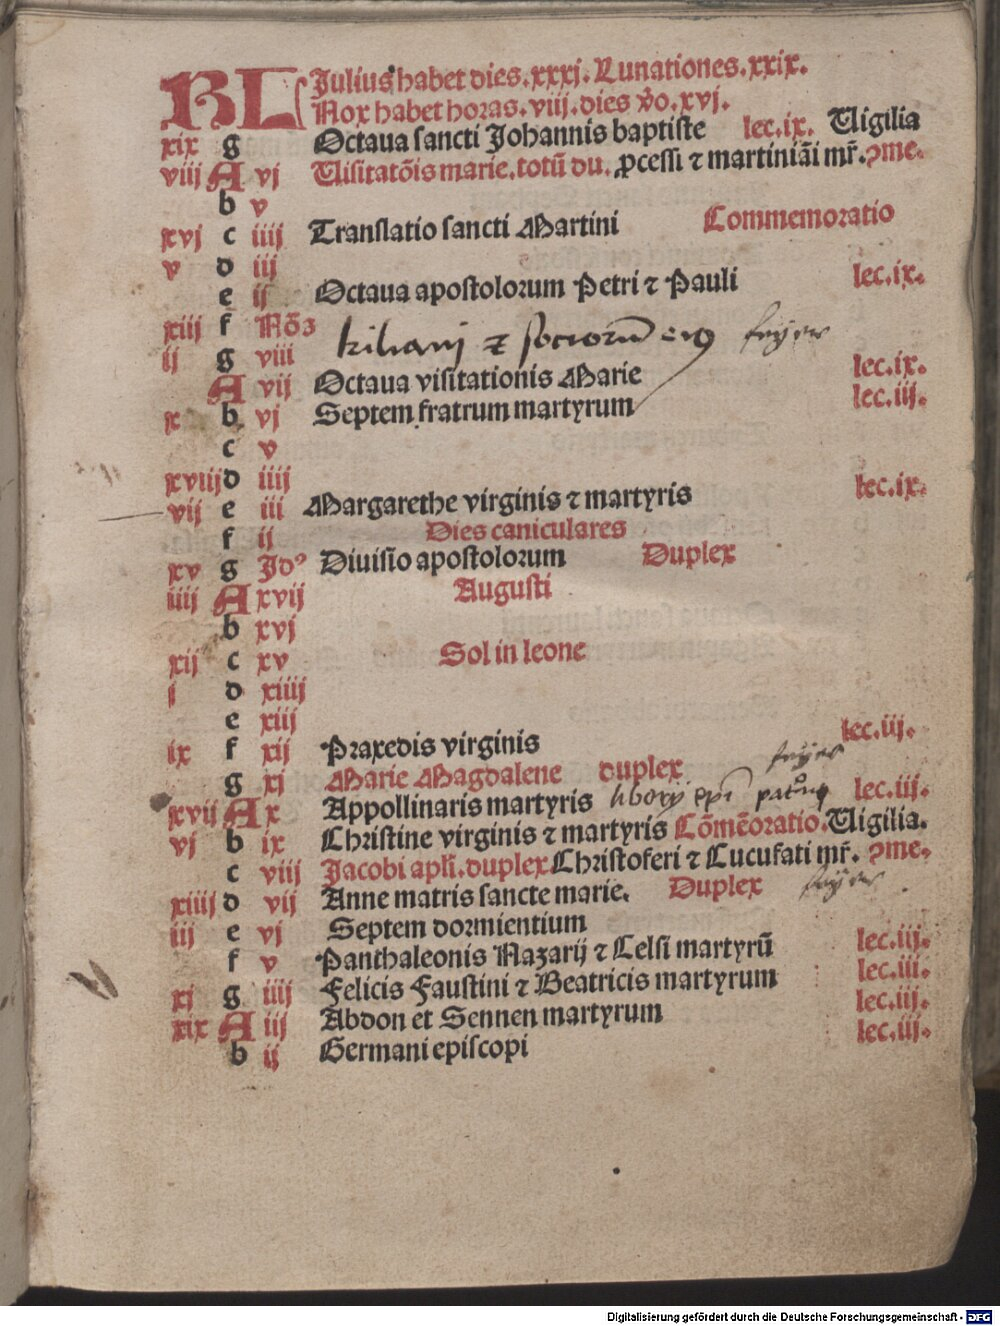 KL Julius habet dies.xxxj. Lunationes.xxix.
Nox habet horas.viij. dies v̊o.xvj.
xix g Octaua sancti Johannis baptiste lec.ix. Uigilia
viij A vj Uisitatõis marie.totũ du. ꝓcessi ⁊ martiniãi mr̃.ꝯme.
b v
xvj c iiij Translatio sancti Martini Commemoratio
v d iij
e ij Octaua apostolorum Petri ⁊ Pauli lec.ix.
xiij f Nõꝫ
kiliani ⁊ sociorũ eiꝰ feyer
ij g viii
A vij Octaua visitationis Marie lec.ix.
x b vj Septem fratrum martyrum lec.iij.
c v
xviij d iiij
vij e iii Margarethe virginis ⁊ martyris lec.ix.
f ij Dies caniculares
xv g Jdꝰ Diuisio apostolorum Duplex
iiij A xvij Augusti
b xvj
xij c xv Sol in leone
j d xiiij
e xiij
ix f xij Praxedis virginis lec.iij.
g xj Marie Magdalene duplex feyer
xvij A x Appollinaris martyris liborij epi lec.iij.
vj b ix Christine virginis ⁊ martyris Cõmẽoratio.Uigilia.
c viij Jacobi apl̃i.duplex Christoferi ⁊ Cucufati mr̃. ꝯme.
xiiij d vij Anne matris sancte marie. Duplex feyer
iij e vj Septem dormientium
f v Panthaleonis Nazarij ⁊ Celsi martyrũ lec.iij.
xj g iiij Felicis Faustini ⁊ Beatricis martyrum lec.iij.
xix A iij Abdon et Sennen martyrum lec.iij.
b ij Germani episcopi lec.iij.
Digitalisierung gefördert durch die Deutsche Forschungsgemeinschaft - DFG